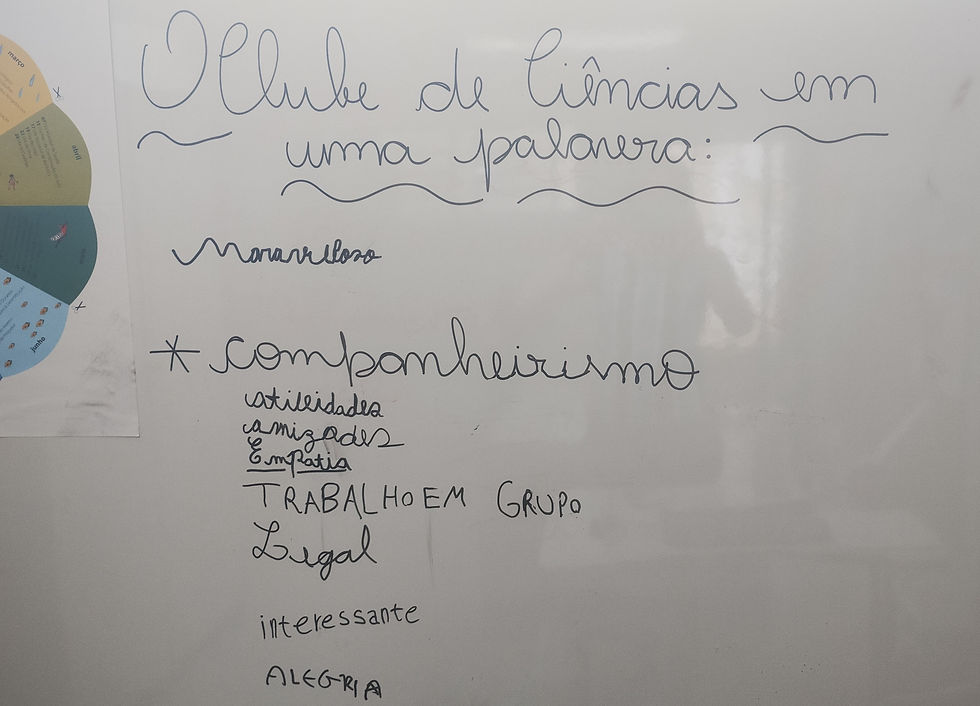 março
abril
junho
O Clube de Ciências em
uma palavra:
Maravilhoso
* companheirismo
amizades
Empatia
TRABALHO EM GRUPO
Legal
interessante
ALEGRIA